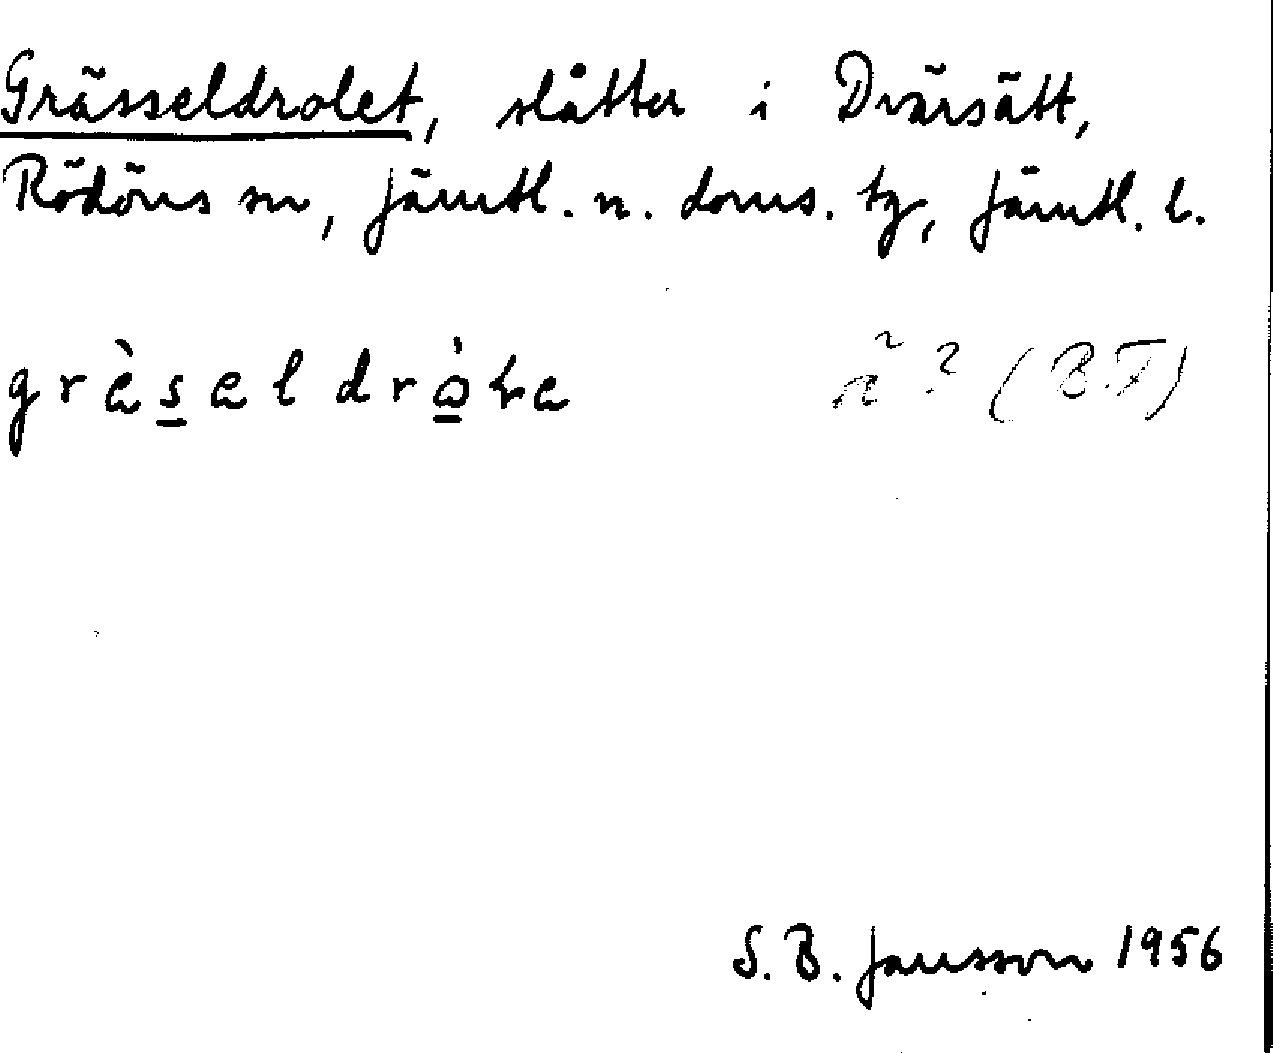 Grässeldrolet, slåtter i Dvärsätt,
Rödöns sn, Jämtl. n. doms. tg, Jämtl. l.
ä? (B.F)
S. B. Jansson 1956